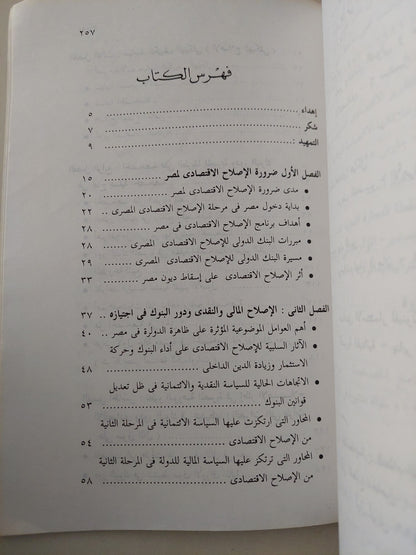 ٢٥٧
فهرس الكتاب
إهداء ................ ٥
شكر ................ ٧
التمهيد : ................ ٩
الفصل الأول ضرورة الإصلاح الاقتصادى لمصر ........ ١٥
• مدى ضرورة الإصلاح الاقتصادى لمصر ........ ٢٠
• بداية دخول مصر فى مرحلة الإصلاح الاقتصادى المصرى .. ٢٢
• أهداف برنامج الإصلاح الاقتصادى فى مصر ........ ٢٨
• مبررات البنك الدولى للإصلاح الاقتصادى المصرى ...... ٢٨
• مسيرة البنك الدولى للإصلاح الاقتصادى المصرى ...... ٢٩
• أثر الإصلاح الاقتصادى على إسقاط ديون مصر ........ ٣٣
الفصل الثانى : الإصلاح المالى والنقدى ودور البنوك فى اجتيازه .. ٣٧
• أهم العوامل الموضوعية المؤثرة على ظاهرة الدولرة فى مصر .. ٤٠
• الآثار السلبية للإصلاح الاقتصادى على أداء البنوك وحركة
الاستثمار وزيادة الدين الداخلى ................ ٤٨
• الاتجاهات الحالية للسياسة النقدية والائتمانية فى ظل تعديل
قوانين البنوك ................ ٥٣
• المحاور التى ارتكزت عليها السياسة الائتمانية فى المرحلة الثانية
من الإصلاح الاقتصادى ................ ٥٤
• المحاور التى ترتكز عليها السياسة المالية للدولة فى المرحلة الثانية
من الإصلاح الاقتصادى ................ ٥٨